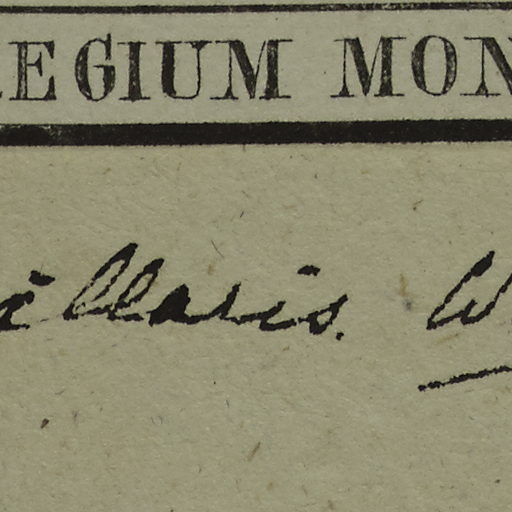 EGIUM MON
illaris. W